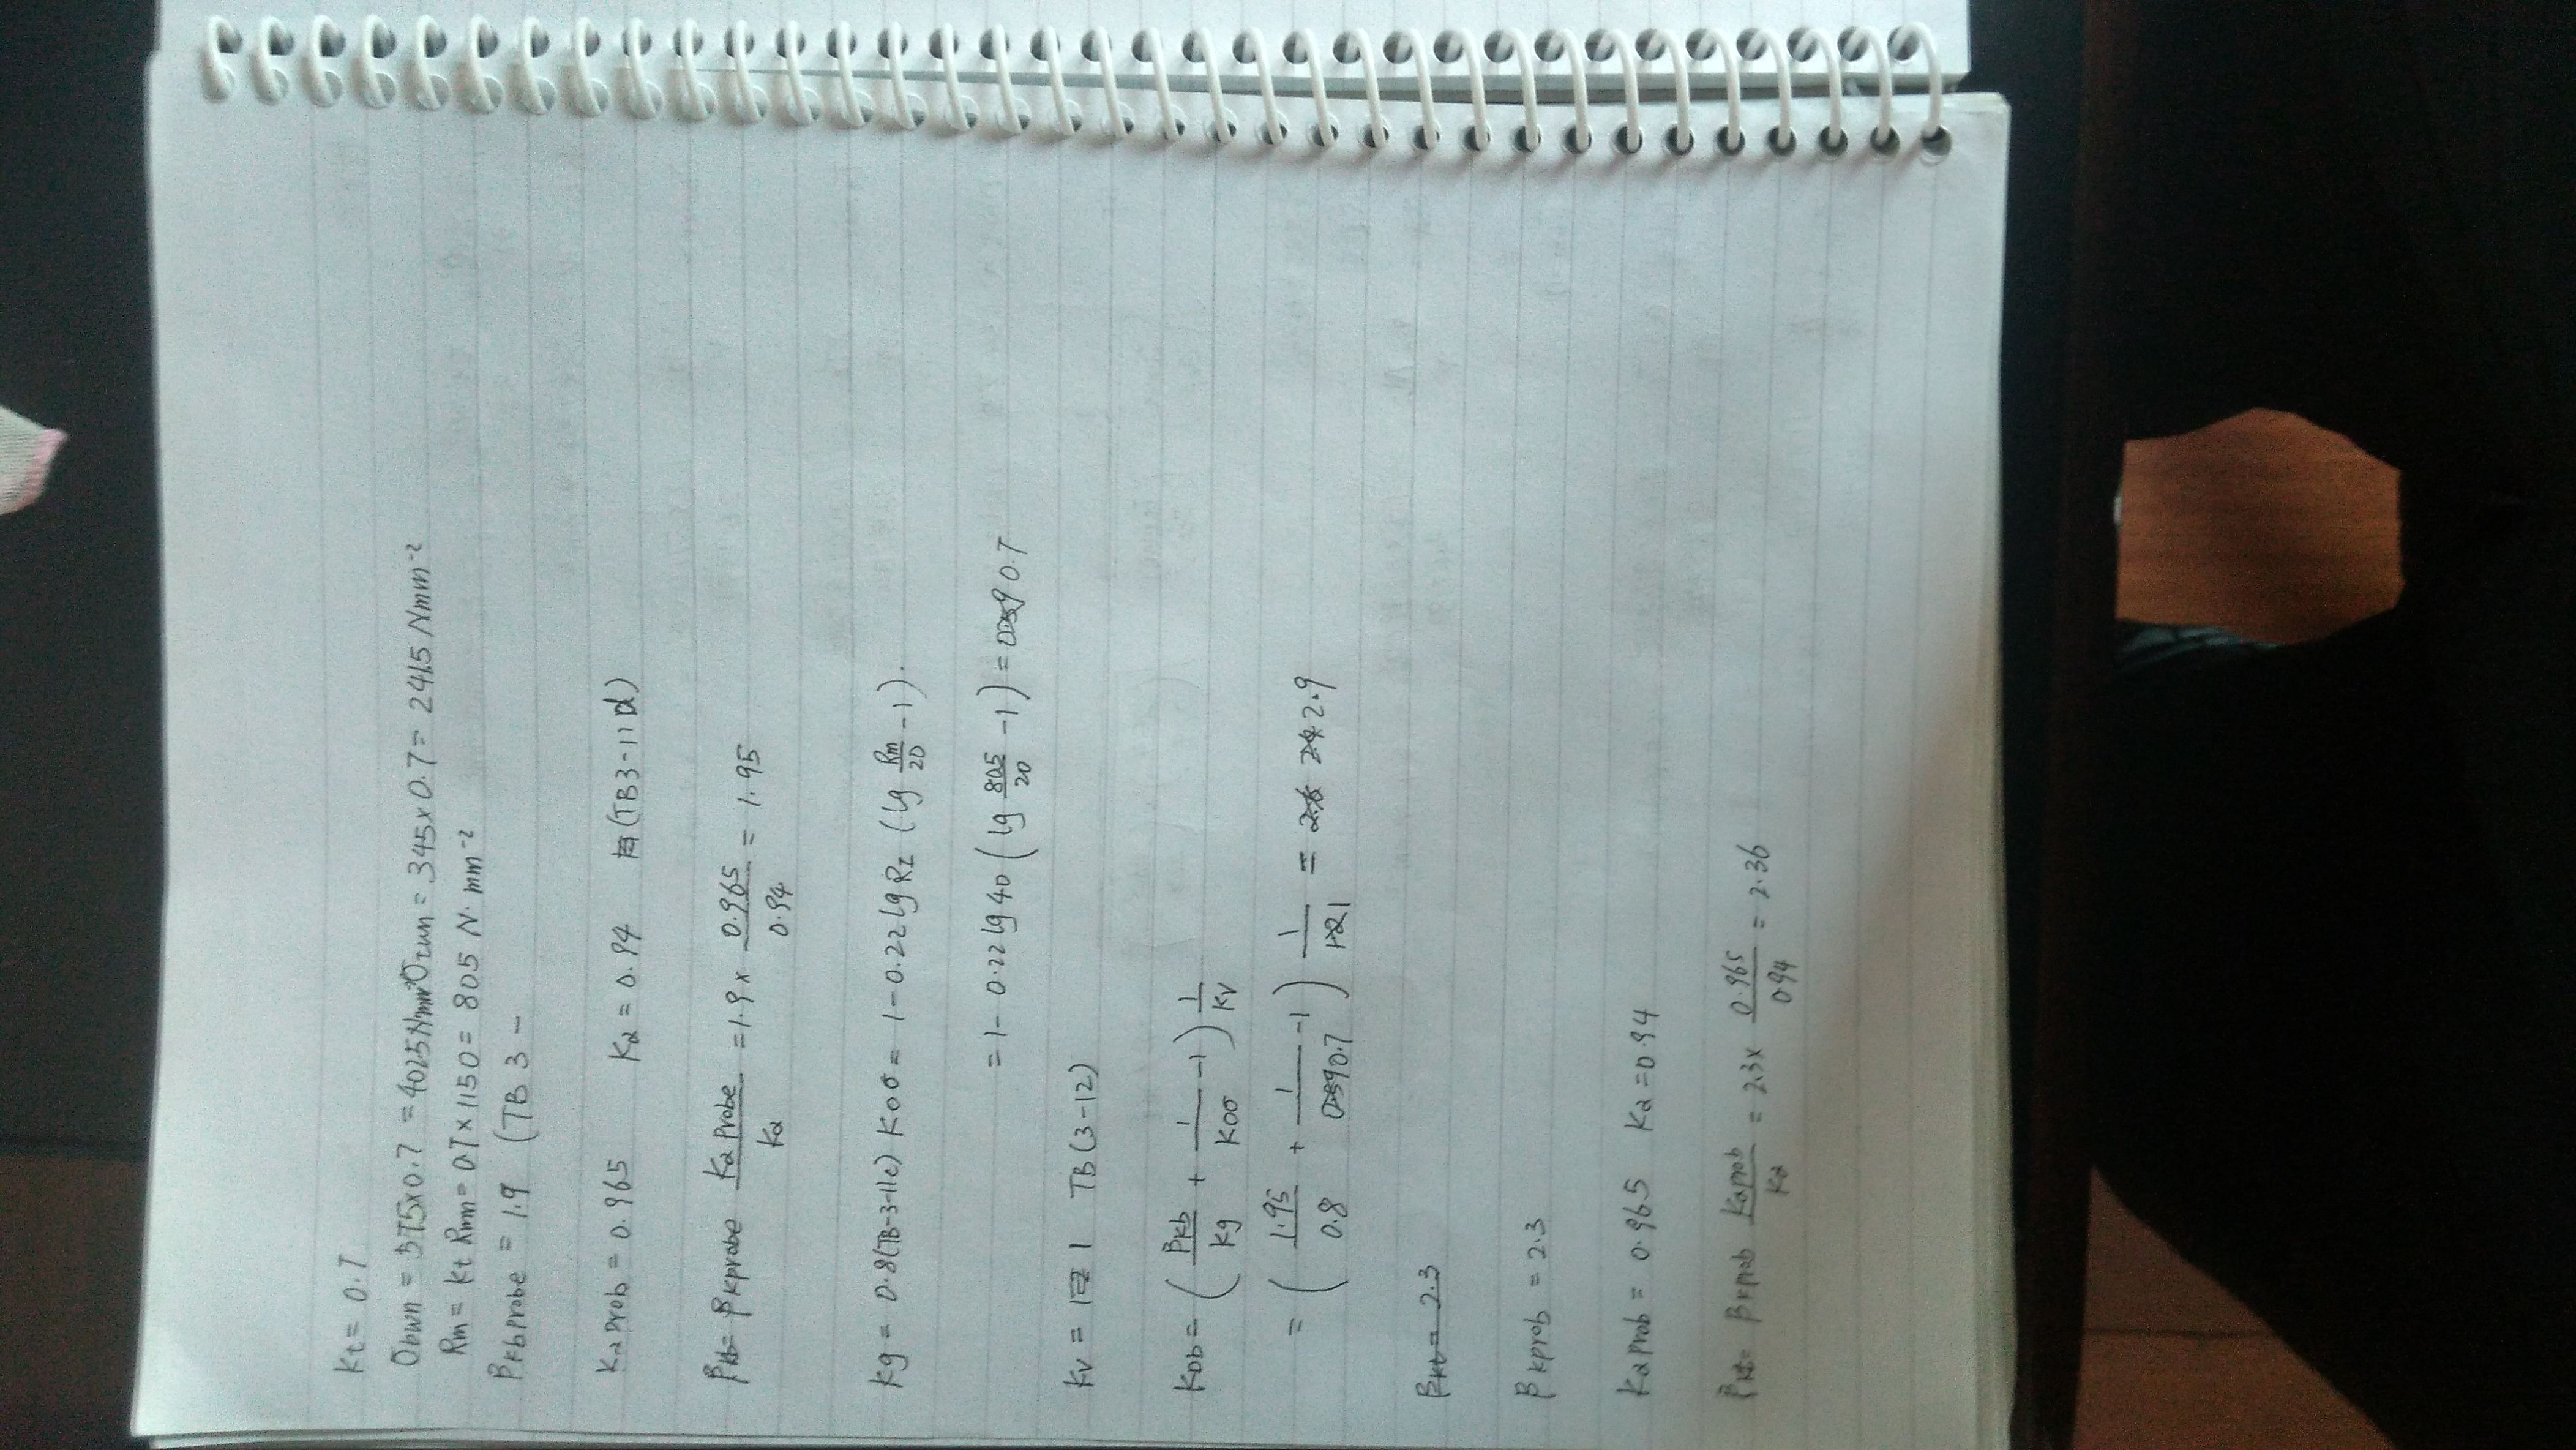 Kt = 0.7
σbwn = 575x0.7 = 402.5Nmm⁻² στwn = 345x0.7 = 241.5 Nmm⁻²
Rm = Kt Rmn = 0.7 x 1150 = 805 N·mm⁻²
βkbprobe = 1.9 (TB 3 -
Kα prob = 0.965 Kα = 0.94 (TB3-11d)
βkb = βkprobe Kα probe / Kα = 1.9 x 0.965 / 0.94 = 1.95
Kg = 0.8 (TB-3-11c) K0σ = 1 - 0.22 lg Rz (lg Rm / 20 - 1).
= 1 - 0.22 lg 40 (lg 805 / 20 - 1) = 0.7
Kv = 1 TB (3-12)
KDb = (βkb / Kg + 1 / K0σ - 1) 1 / Kv
= (1.95 / 0.8 + 1 / 0.7 - 1) 1 / 1 = 2.9
βkt = 2.3
βkprob = 2.3
Kα prob = 0.965 Kα = 0.94
βkt = βkprob Kαprob / Kα = 2.3x 0.965 / 0.94 = 2.36